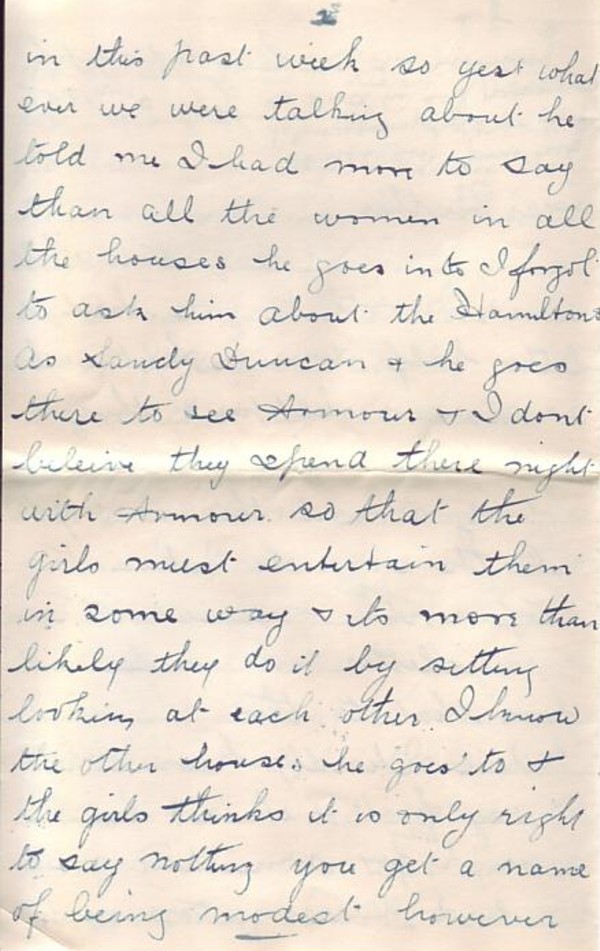 2
in this past week so yest what
ever we were talking about he
told me I had more to say
than all the women in all
the houses he goes into I forgot
to ask him about the Hamiltons
as Sandy Duncan & he goes
there to see Armour & I dont
beleive they spend there night
with Armour. so that the
girls must entertain them
in some way & its more than
likely they do it by sitting
looking at each other. I know
the other houses he goes to &
the girls thinks it is only right
to say nothing you get a name
of being modest however